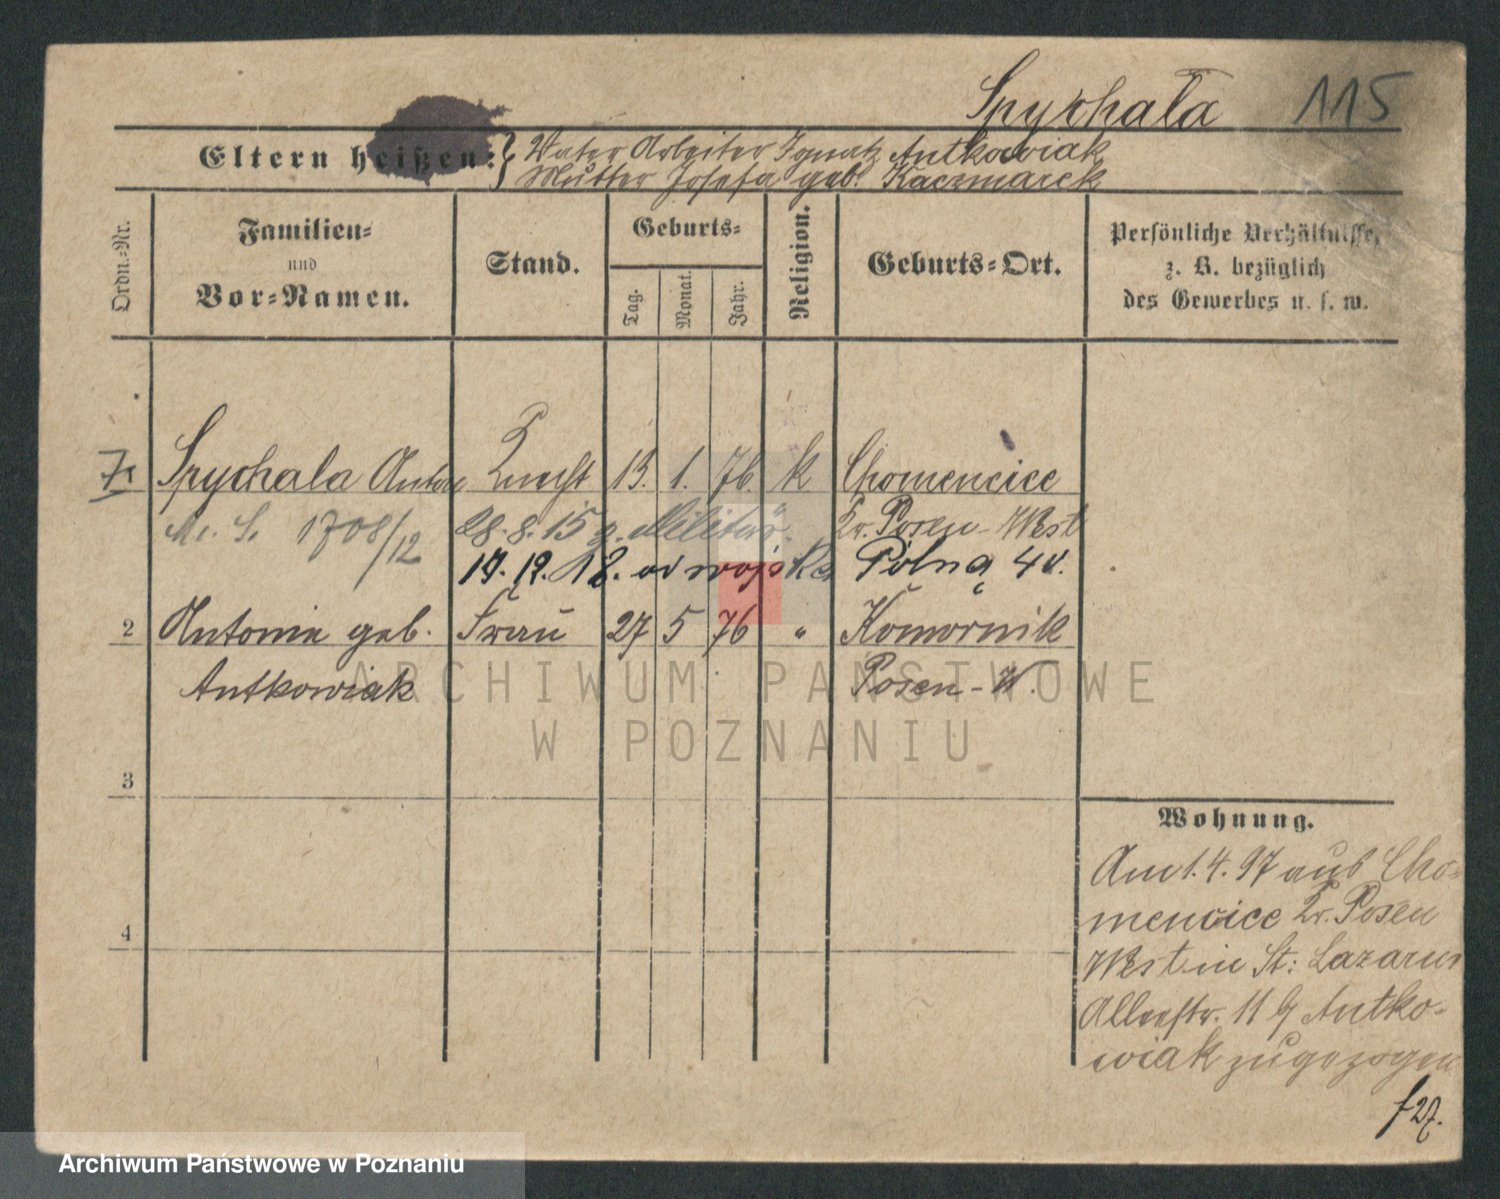 Spychala 115
Eltern heißen: } Vater Arbeiter Ignatz Antkowiak
Mutter Josefa geb. Kaczmarek
Ordn.-Nr.
Familien-
und
Vor-Namen.
Stand.
Geburts-
Tag. Monat. Jahr.
Religion.
Geburts-Ort.
Persönliche Verhältnisse,
z. B. bezüglich
des Gewerbes u. s. w.
Spychala Anton Knecht 13. 1. 76. k Chomencice
M. S. 1708/12 28. 8. 15 z. Militär. Kr. Posen-West
19. 12. 18. od wojska Polna 4a.
2 Antonie geb. Frau 27 5 76 " Komornik
Antkowiak Posen-W.
3
4
Wohnung.
Am 1. 4. 97 aus Cho-
mencice Kr. Posen
West in St: Lazarus
Alleestr. 11 b Antko-
wiak zugezogen
f 27.
ARCHIWUM PAŃSTWOWE
W POZNANIU
Archiwum Państwowe w Poznaniu